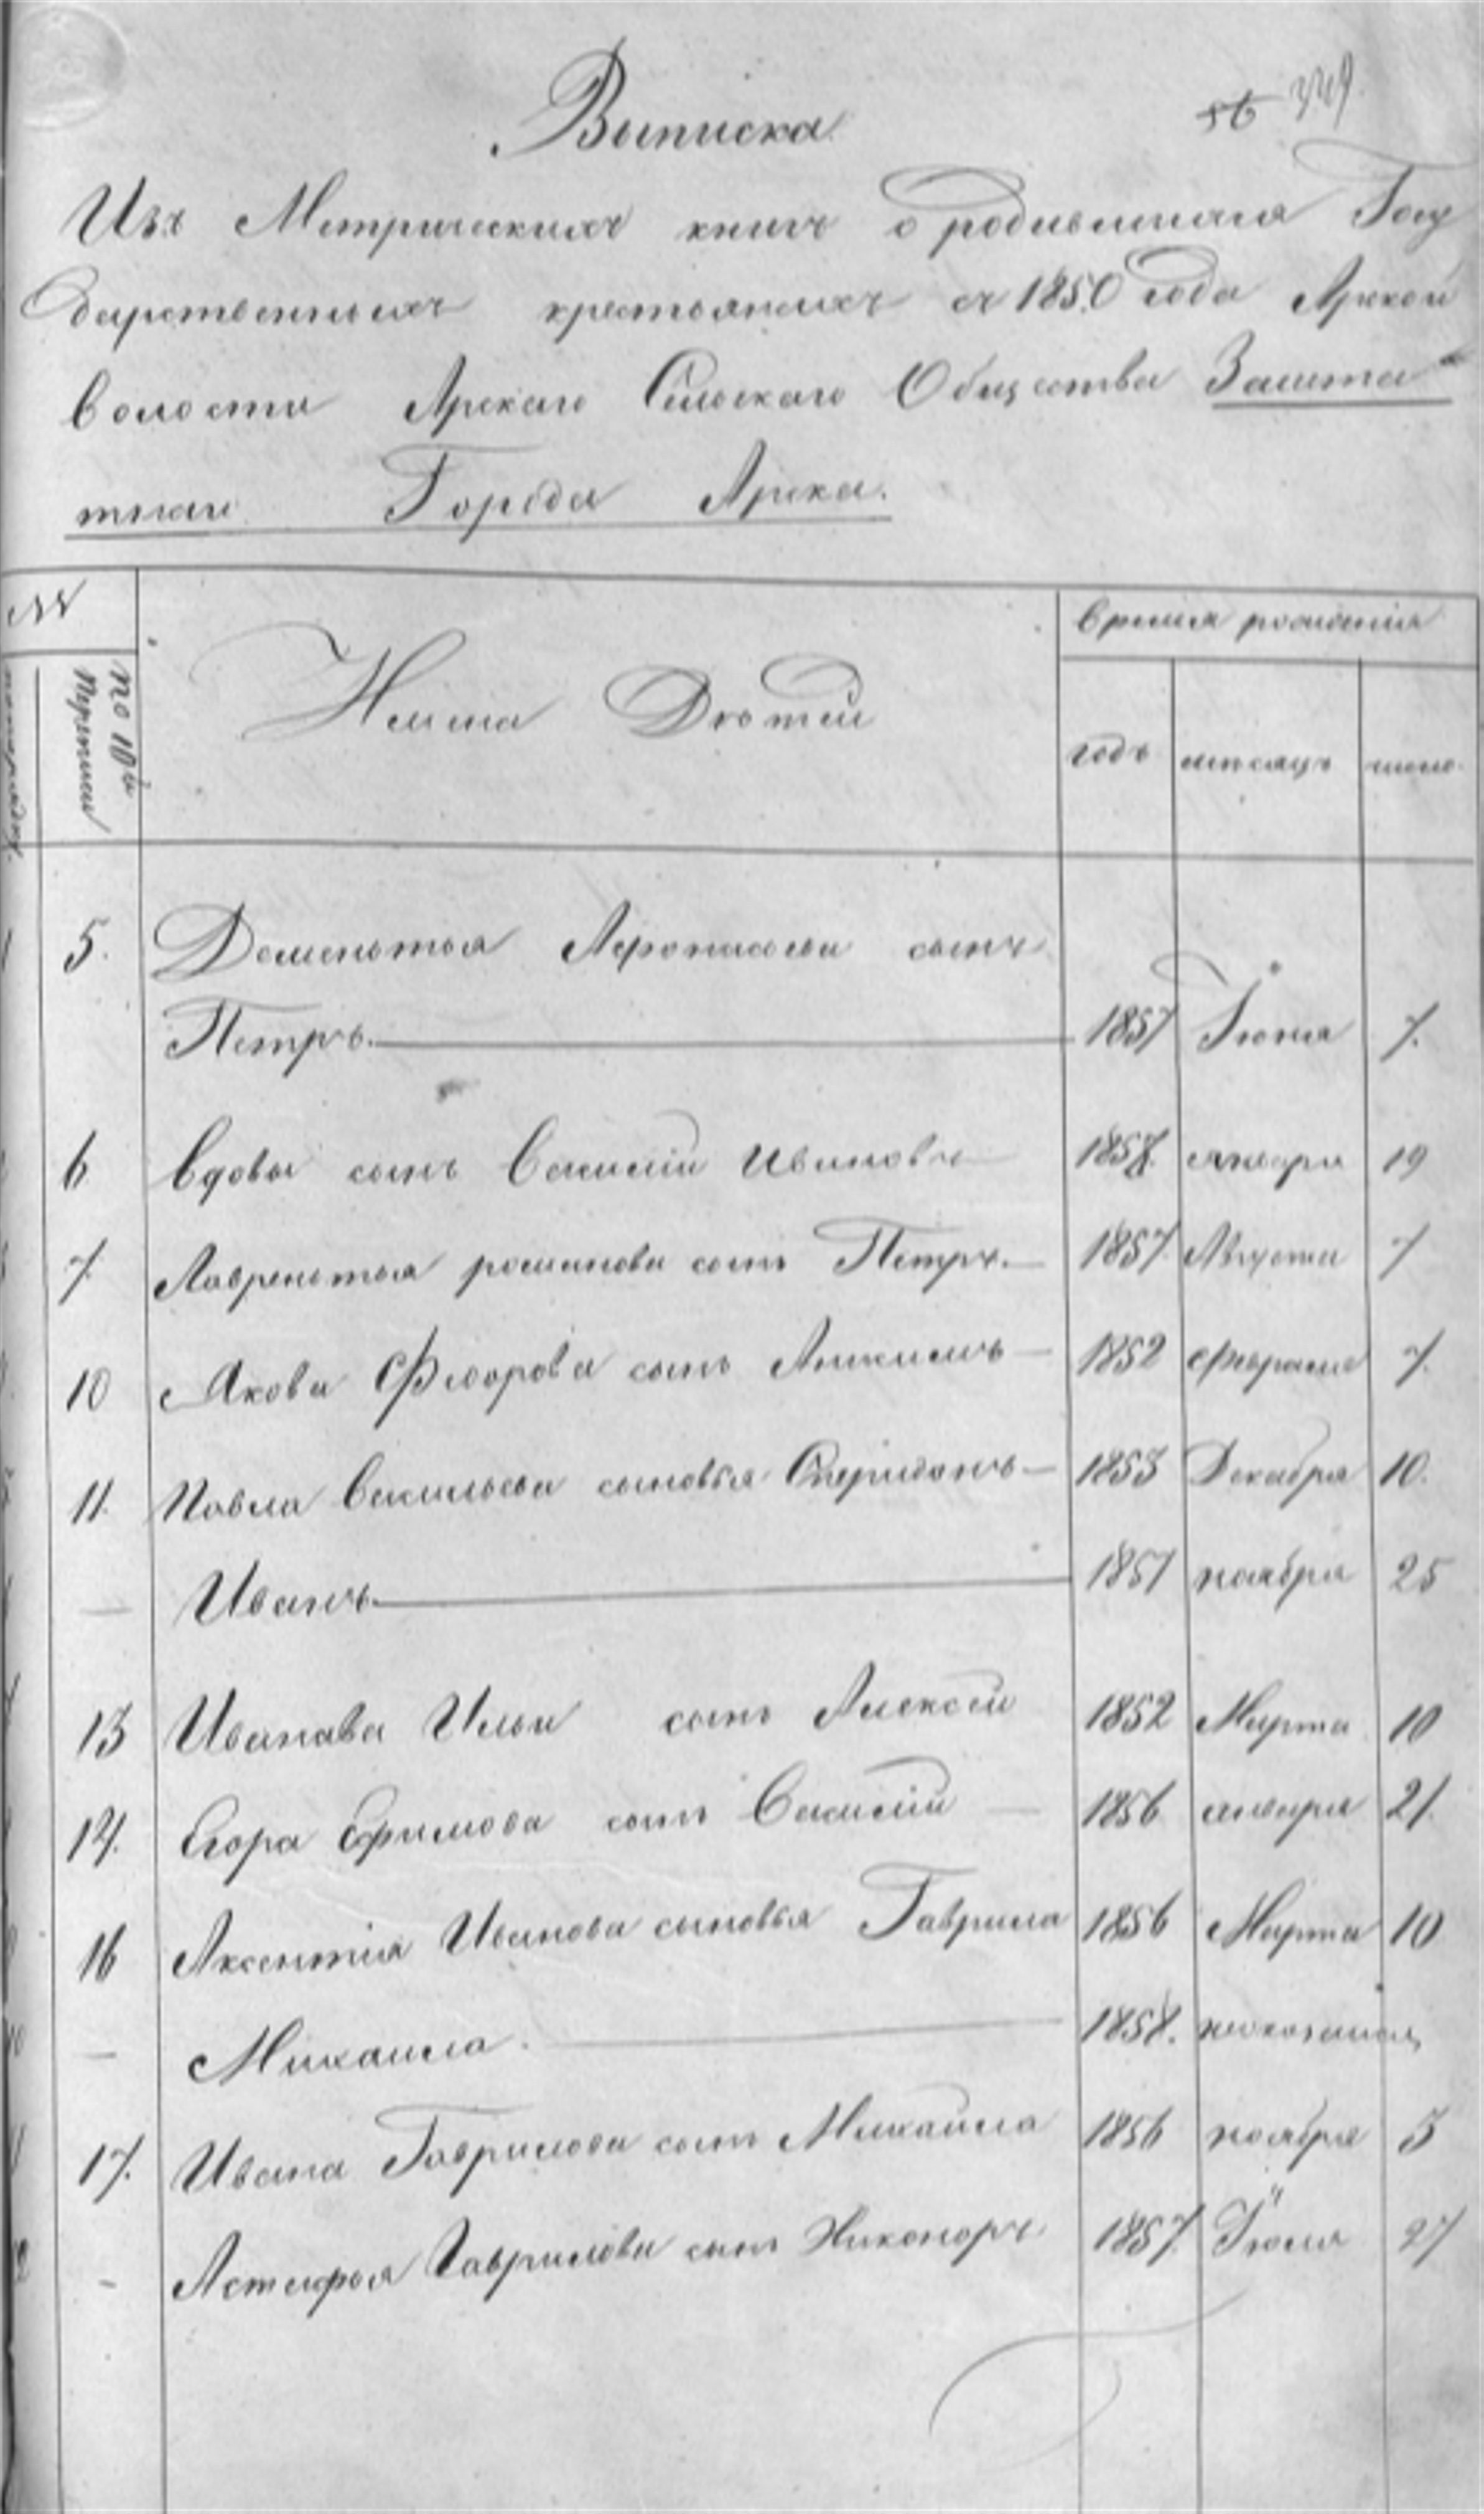 Выписка
56 349
Изъ Метрическихъ книгъ о родившихся Госу
дарственныхъ крестьянахъ съ 1850 года Арской
волости Арскаго Сельскаго Общества Зашта
тнаго Города Арска.
№
по 10й
Переписи
Имена Дѣтей
время рожденія
годъ мѣсяцъ число
5. Дементья Афонасьева сынъ
Петръ. 1857 Іюня 7.
6 Вдовы сынъ Василій Ивановъ 1858. января 19
7 Лаврентья романова сынъ Петръ. 1857. Августа 7
10 Якова Федорова сынъ Аникимъ 1852 февраля 7.
11. Павла Васильева сыновья Спиридонъ 1853 Декабря 10.
— Иванъ 1857 ноября 25
13 Иванава Ильи сынъ Алексей 1852 Марта 10
14. Егора Ефимова сынъ Василій 1856 января 21.
16 Аксентія Иванова сыновья Гаврила 1856 Марта 10
— Михаила. 1858.
17. Ивана Гаврилова сынъ Михаила 1856 ноября 3
- Астафья Гаврилова сынъ Никоноръ 1857. Іюля 27